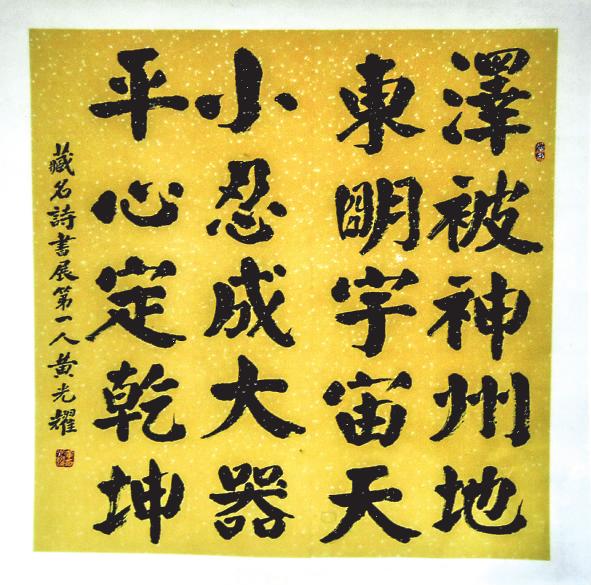 澤被神州地
東明宇宙天
小忍成大器
平心定乾坤
藏名詩書展第一人黄光耀